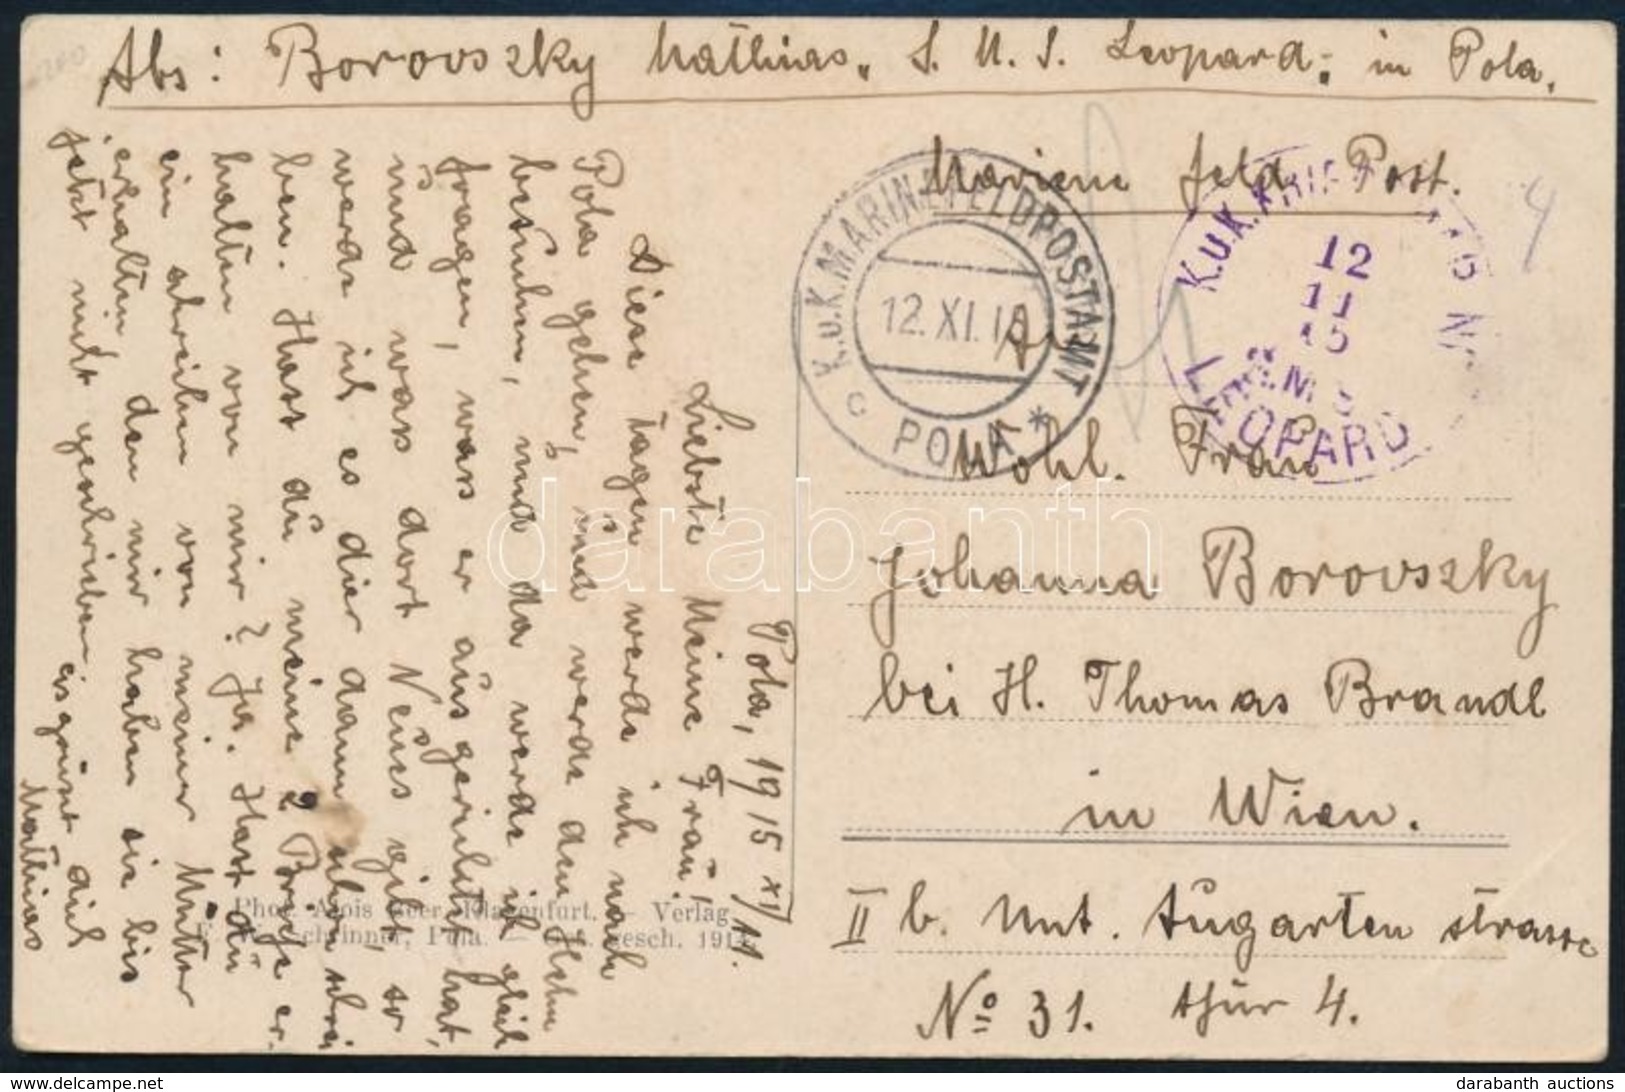 Abs: Borovszky Mathias „S. M. S. Leopard„ in Pola.
Mariene feld Post.
K.u.K. MARINEFELDPOSTAMT
12.XI.15
c POLA *
K.U.K. KRIEGS
12
11
15
S.M.S
LEOPARD
An
Wohl. Frau
Johanna Borovszky
bei H. Thomas Brandl
in Wien.
II b. Unt. Augarten strasse
No 31. thür 4.
Pola, 1915 XI/11.
Liebste Meine Frau!
Diese tagen werde ich nach
Pola gehen, und werde den Helm
besuhen, und da werde ich gleich
fragen, wass er ausgerichtet hat,
und was dort Neues gibt, so
werde ich es dier dann schrei
ben. Hast du meine 2 Briefe er
halten von mir? Ja. Hast du
ein schreiben von meiner Mutter
erhalten, den mir haben sie bis
jetzt nicht geschrieben
es grüst dich
Mathias
Phot. Alois Beer, Klagenfurt. — Verlag
F. W. Schrinner, Pola. — Ges. gesch. 191
darabanth
darabanth auctions
www.delcampe.net